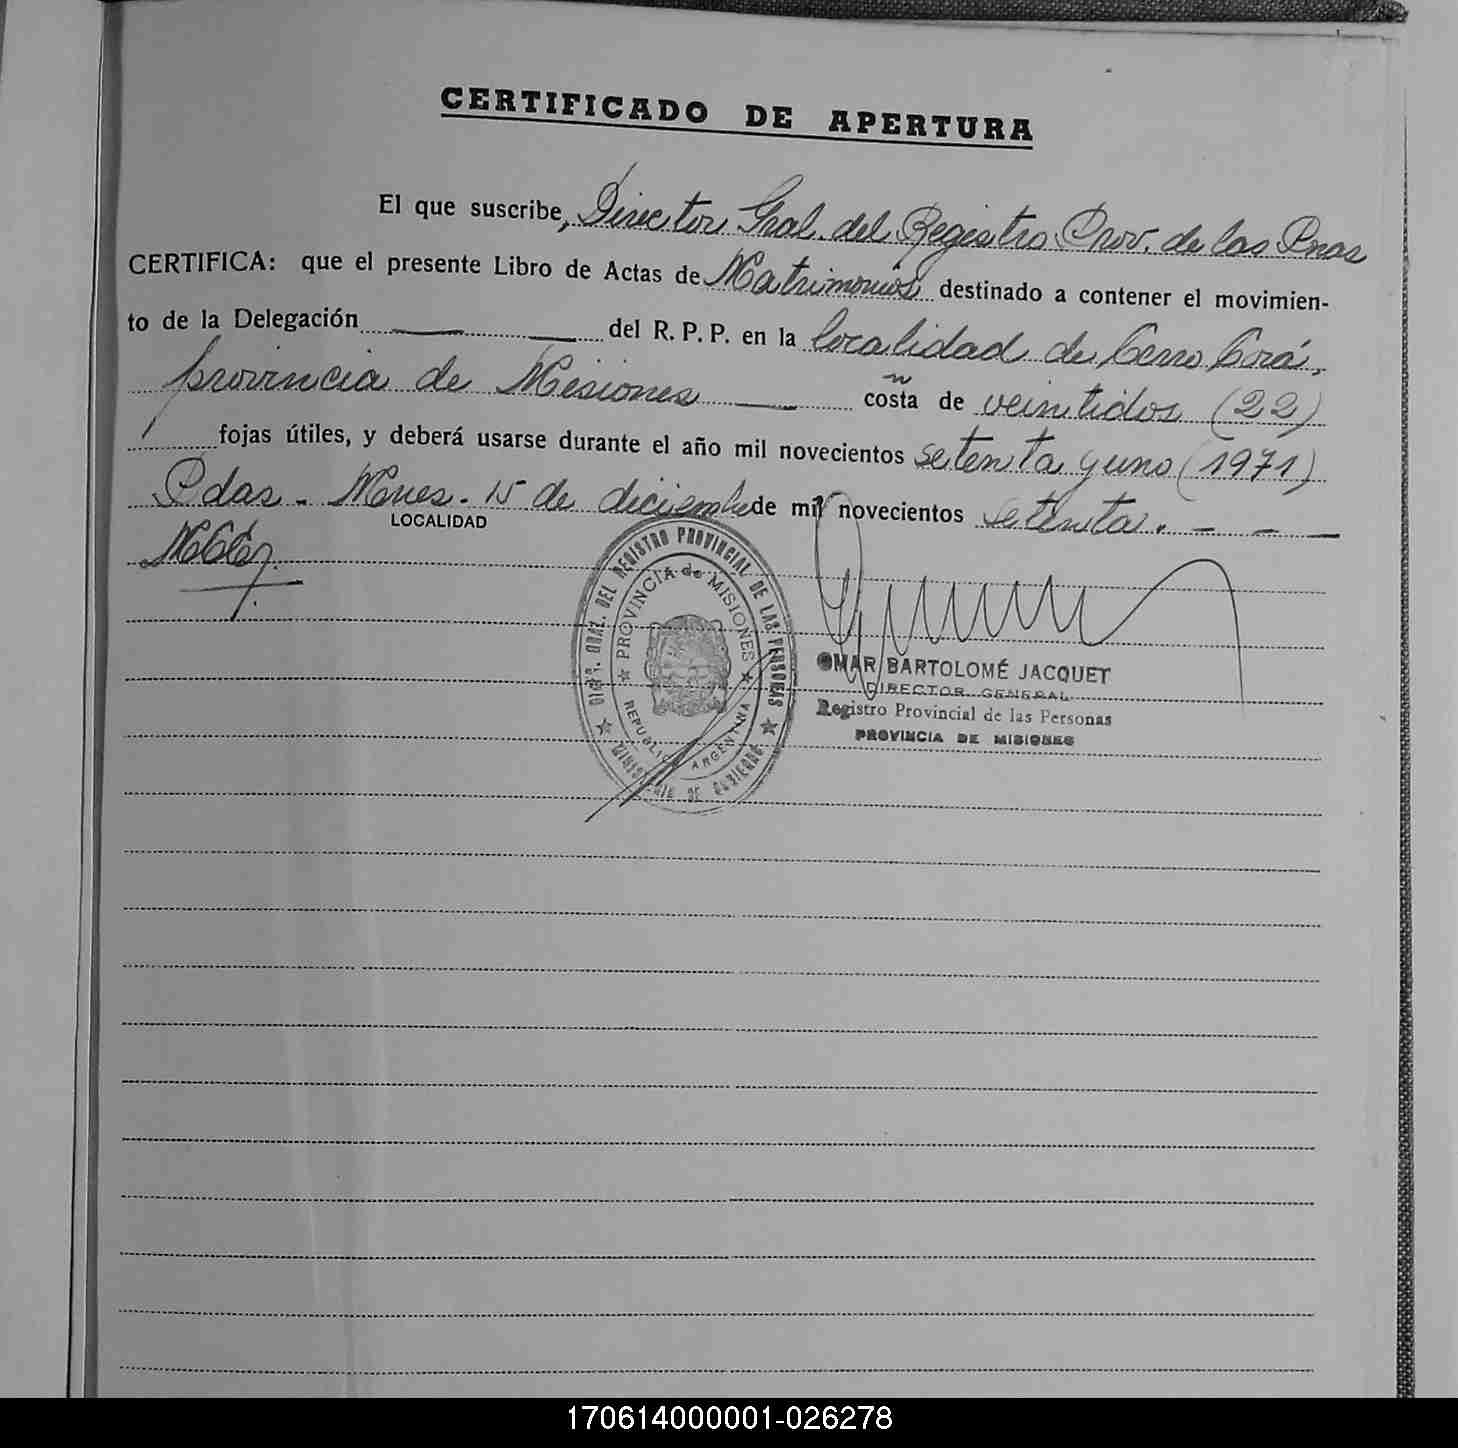 CERTIFICADO DE APERTURA
El que suscribe, Director Gral. del Registro Prov. de las Pnas
CERTIFICA: que el presente Libro de Actas de Matrimonios destinado a contener el movimien-
to de la Delegación — — del R. P. P. en la localidad de Cerro Corá,
provincia de Misiones — costa de veintidos (22)
fojas útiles, y deberá usarse durante el año mil novecientos setenta y uno (1971)
Pdas. Mnes. 15 de diciembre de mil novecientos setenta. - - -
LOCALIDAD
DIRC. GRAL. DEL REGISTRO PROVINCIAL DE LAS PERSONAS
PROVINCIA de MISIONES
REPUBLICA ARGENTINA
MINISTERIO DE GOBIERNO
OMAR BARTOLOMÉ JACQUET
DIRECTOR GENERAL
Registro Provincial de las Personas
PROVINCIA DE MISIONES
170614000001-026278